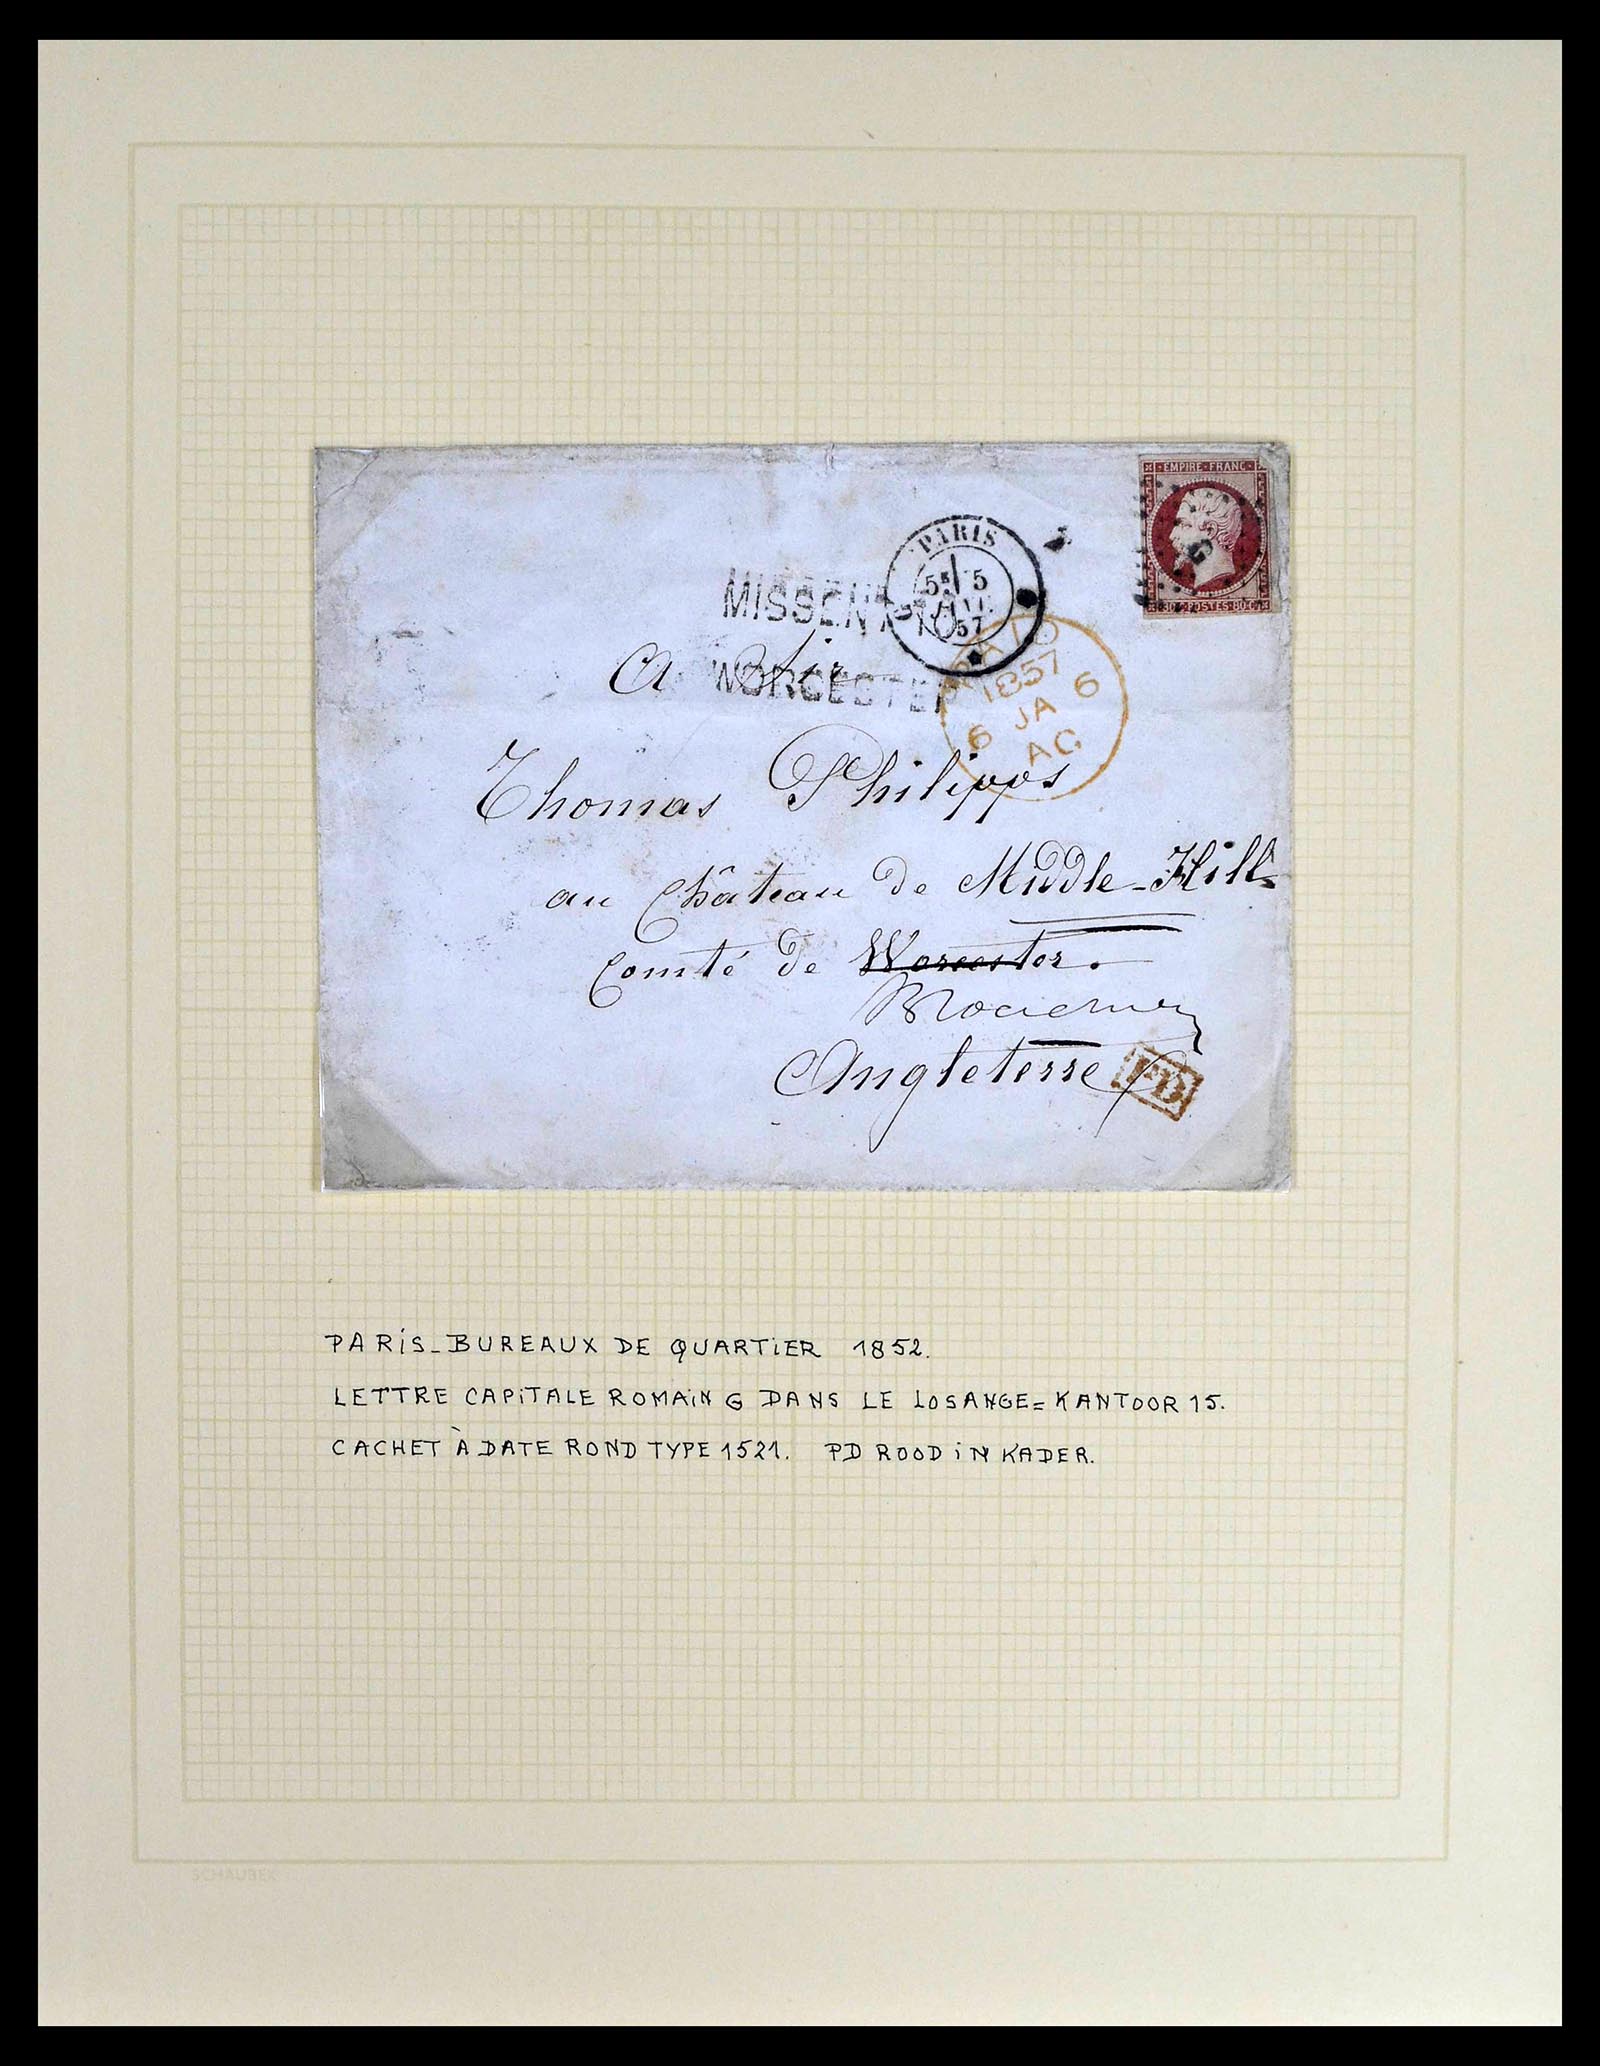 EMPIRE · FRANC ·
80 C · POSTES · 80 C
G
PARIS
5 5
57
MISSENT TO
WORCESTER
PAID
1857
6 JA 6
AC
A Sir
Thomas Philipps
au Château de Middle-Hill
Comté de Worcester.
Angleterre
PD
PARIS_BUREAUX DE QUARTIER 1852.
LETTRE CAPITALE ROMAIN G DANS LE LOSANGE = KANTOOR 15.
CACHET À DATE ROND TYPE 1521. PD ROOD IN KADER.
SCHAUBEK